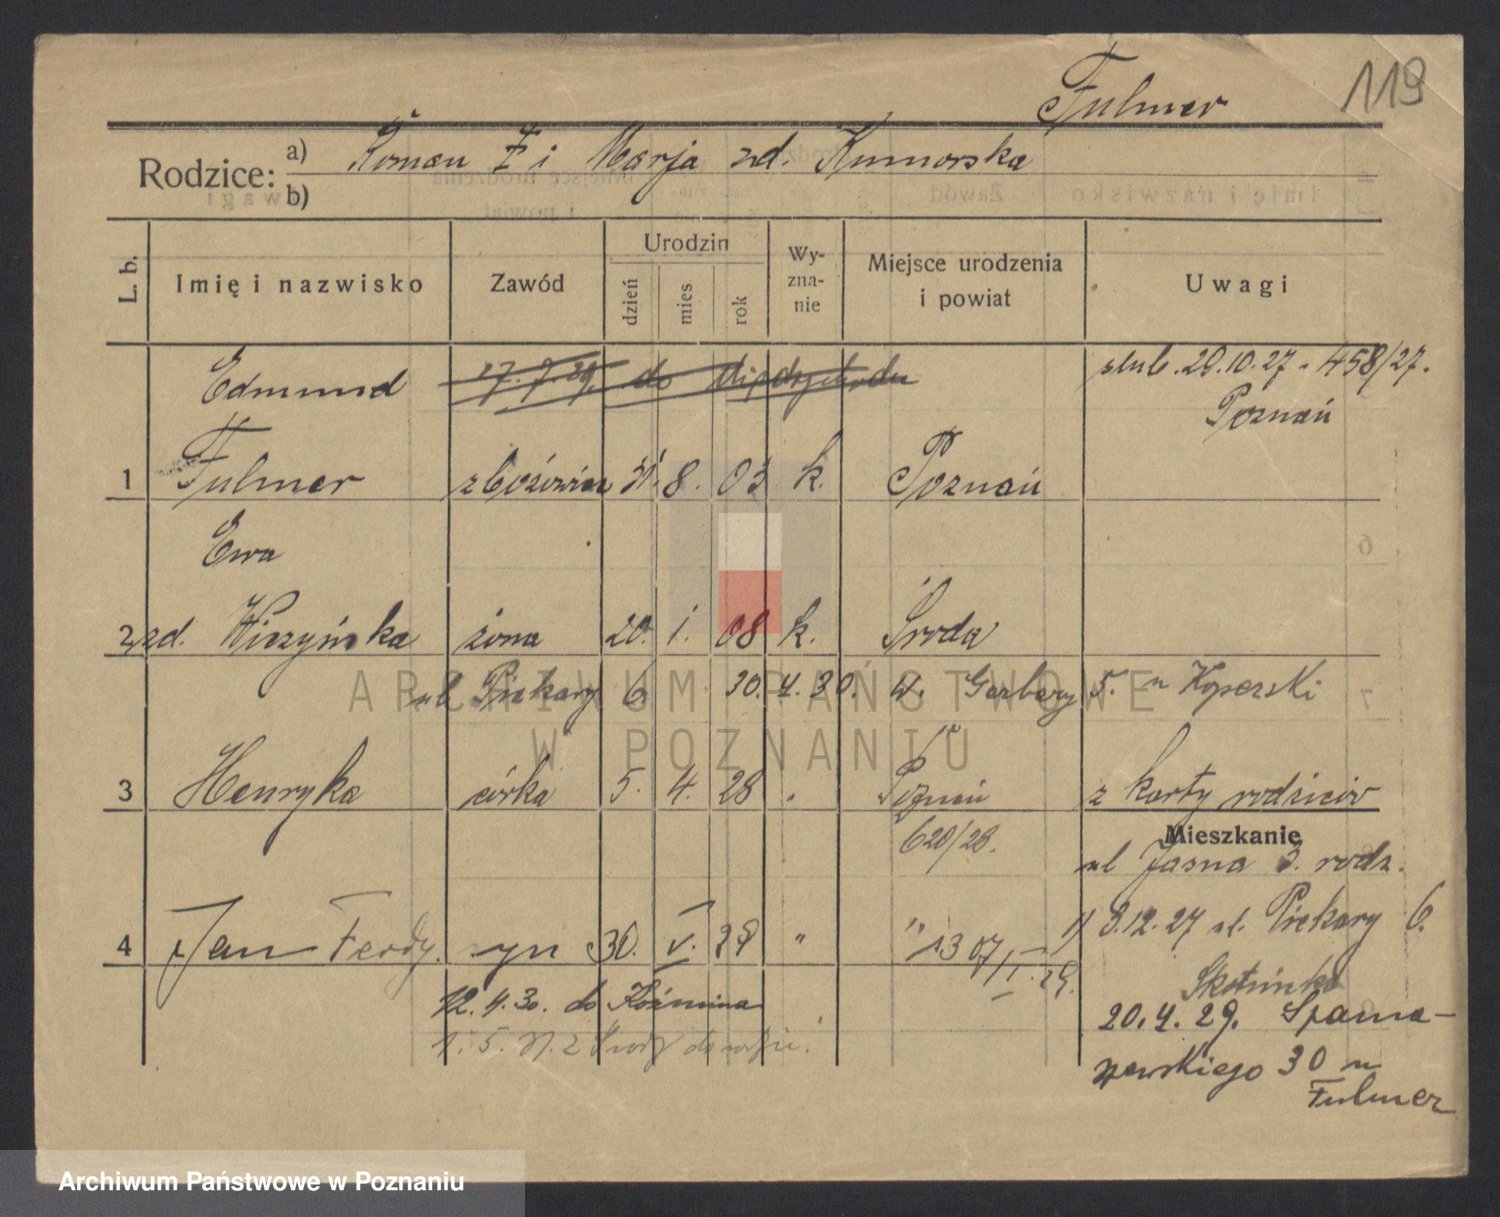 Fulmer
119
Rodzice: a) Roman F i Marja zd. Kumorska
b)
L. b. Imię i nazwisko Zawód Urodzin dzień mies rok Wyznanie Miejsce urodzenia i powiat Uwagi
Edmund 27.7.29. do Międzychodu ślub. 20.10.27. 458/27.
Poznań
1 Fulmer zbożowiec 31. 8. 03 k. Poznań
Ewa
2 zd. Wiczyńska żona 20. 1. 08 k. Środa
ul Piekary 6. 30.4.30. W. Garbary 5. u Koperski
3 Henryka córka 5. 4. 28 " Poznań z karty rodziców
620/28.
Mieszkanie
ul Jasna 3. rodz.
1) 8.12.27 ul. Piekary 6.
4 Jan Ferdy. syn 30. V. 29 " "
Skośińska
12.4.30. do Koźmina 20.4.29. Sparna-
1.5.31. z Środy
wskiego 30 u
Fulmer
ARCHIWUM PAŃSTWOWE
W POZNANIU
Archiwum Państwowe w Poznaniu